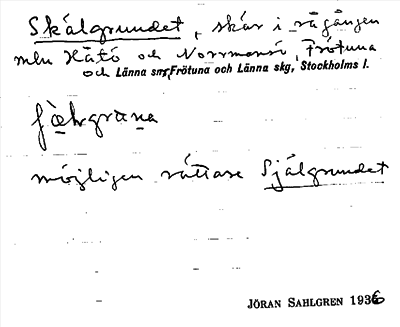 Skälgrundet, skär i rågången
mln Hätö och Norrmansö, Frötuna
och Länna snr, Frötuna och Länna skg, Stockholms l.
möjligen rättare Själgrundet
JÖRAN SAHLGREN 1936